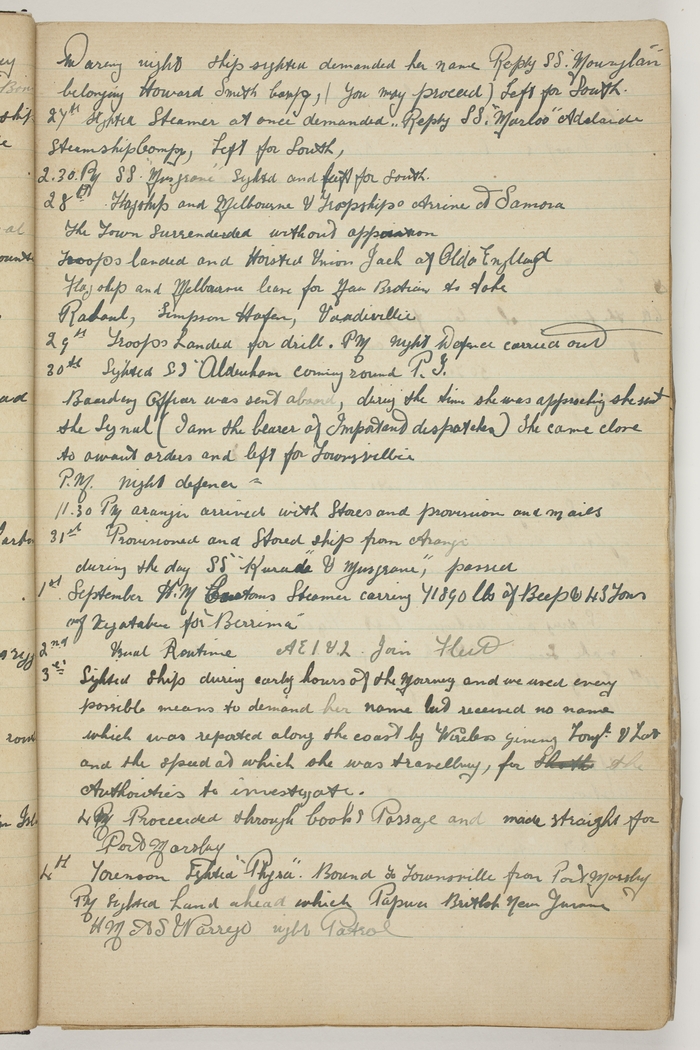 During night ship sighted demanded her name Reply SS. Mounglan
belonging Howard Smith Compy, ( You may proceed ) Left for South.
27th Sighted Steamer at once demanded. Reply SS. "Marloo" Adelaide
Steamship Compy, Left for South,
2.30. PM SS. "Musgrave" Sighted and left for South.
28th Flagship and Melbourne & Troopships Arrive at Samoa
The Town Surrendered without
Troops landed and Hoisted Union Jack of Olda England
Flagship and Melbourne leave for New Britian to take
Rabaul, Simpson Hafen,
29th Troops Landed for drill. PM night Defence carried out
30th Sighted SS "Aldenham coming round P. I.
Boarding Officer was sent aboard, during the time she was approching she sent
the Signal ( I am the bearer of Important dispatches ) She came close
to await orders and left for Townsvillie
P.M. night defence "
11.30 PM arangi arrived with Stores and provision and mails
31st Provisioned and Stored ship from Arangi
during the day SS "Kuranda" & Musgrave", passed
1st September H.M Customs Steamer carring 71890 lbs of Beep & 43 Tons
of Vegatable for "Berrima"
2nd Usual Routine AE1 & 2 Join Fleet
3rd Sighted ship during early hours of the Morning and we used every
possible means to demand her name but received no name
which was reported along the coast by Wireless giving Long. & Lat
and the speed at which she was travelling, for the
Authorities to investigate.
4 PM Proceeded through Cook's Passage and made straight for
Port Morsby
4th Forenoon Sighted "Physa". Bound to Townsville from Port Morsby
PM Sighted Land ahead which Papua British New
HMAS Warrego night Patrol